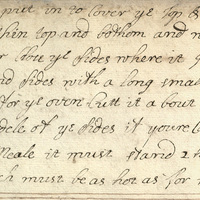 put in to Cover ye top &
thin top and bothom and n
ye sides where it
sides with a long smal
for ye oven Cutt it a bout
dele of ye sides it youre
Meale it must stand 2 h
must be as hot as for